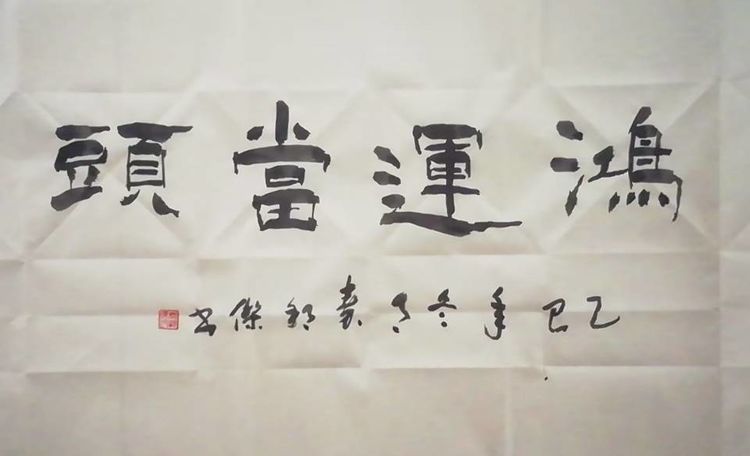 鴻運當頭
乙巳年冬月袁郅傑书